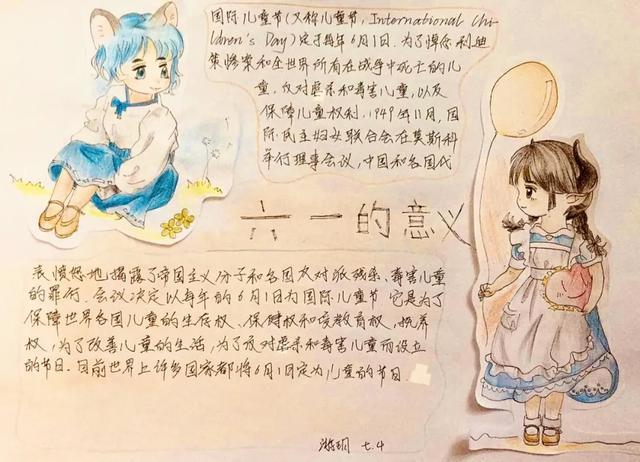 国际儿童节(又称儿童节,International Chi-
ldren's Day)定于每年6月1日.为了悼念利迪
策惨案和全世界所有在战争中死亡的儿
童,反对虐杀和毒害儿童,以及
保障儿童权利.1949年11月,国
际民主妇女联合会在莫斯科
举行理事会议,中国和各国代
六一的意义
表愤怒地揭露了帝国主义分子和各国反对派残杀、毒害儿童
的罪行.会议决定以每年的6月1日为国际儿童节.它是为了
保障世界各国儿童的生存权、保健权和受教育权,抚养
权,为了改善儿童的生活,为了反对虐杀和毒害儿童而设立
的节日.目前世界上许多国家都将6月1日定为儿童的节日
七.4